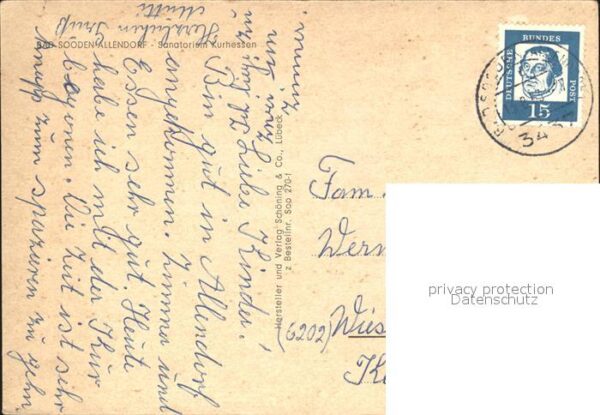 BAD SOODEN-ALLENDORF - Sanatorium Kurhessen
Liebe Kinder!
Bin gut in Allendorf
angekommen. Zimmer und
Essen sehr gut. Heute
habe ich mit der Kur
begonn. Die Zeit ist sehr
knapp zum spazieren zu gehn.
Herzlichen Gruß
Mutti
Hersteller und Verlag Schöning & Co., Lübeck
z Bestellnr. Soo 270-1
DEUTSCHE
BUNDES
POST
15
34
Fam.
Wern
(6202) Wies
privacy protection
Datenschutz